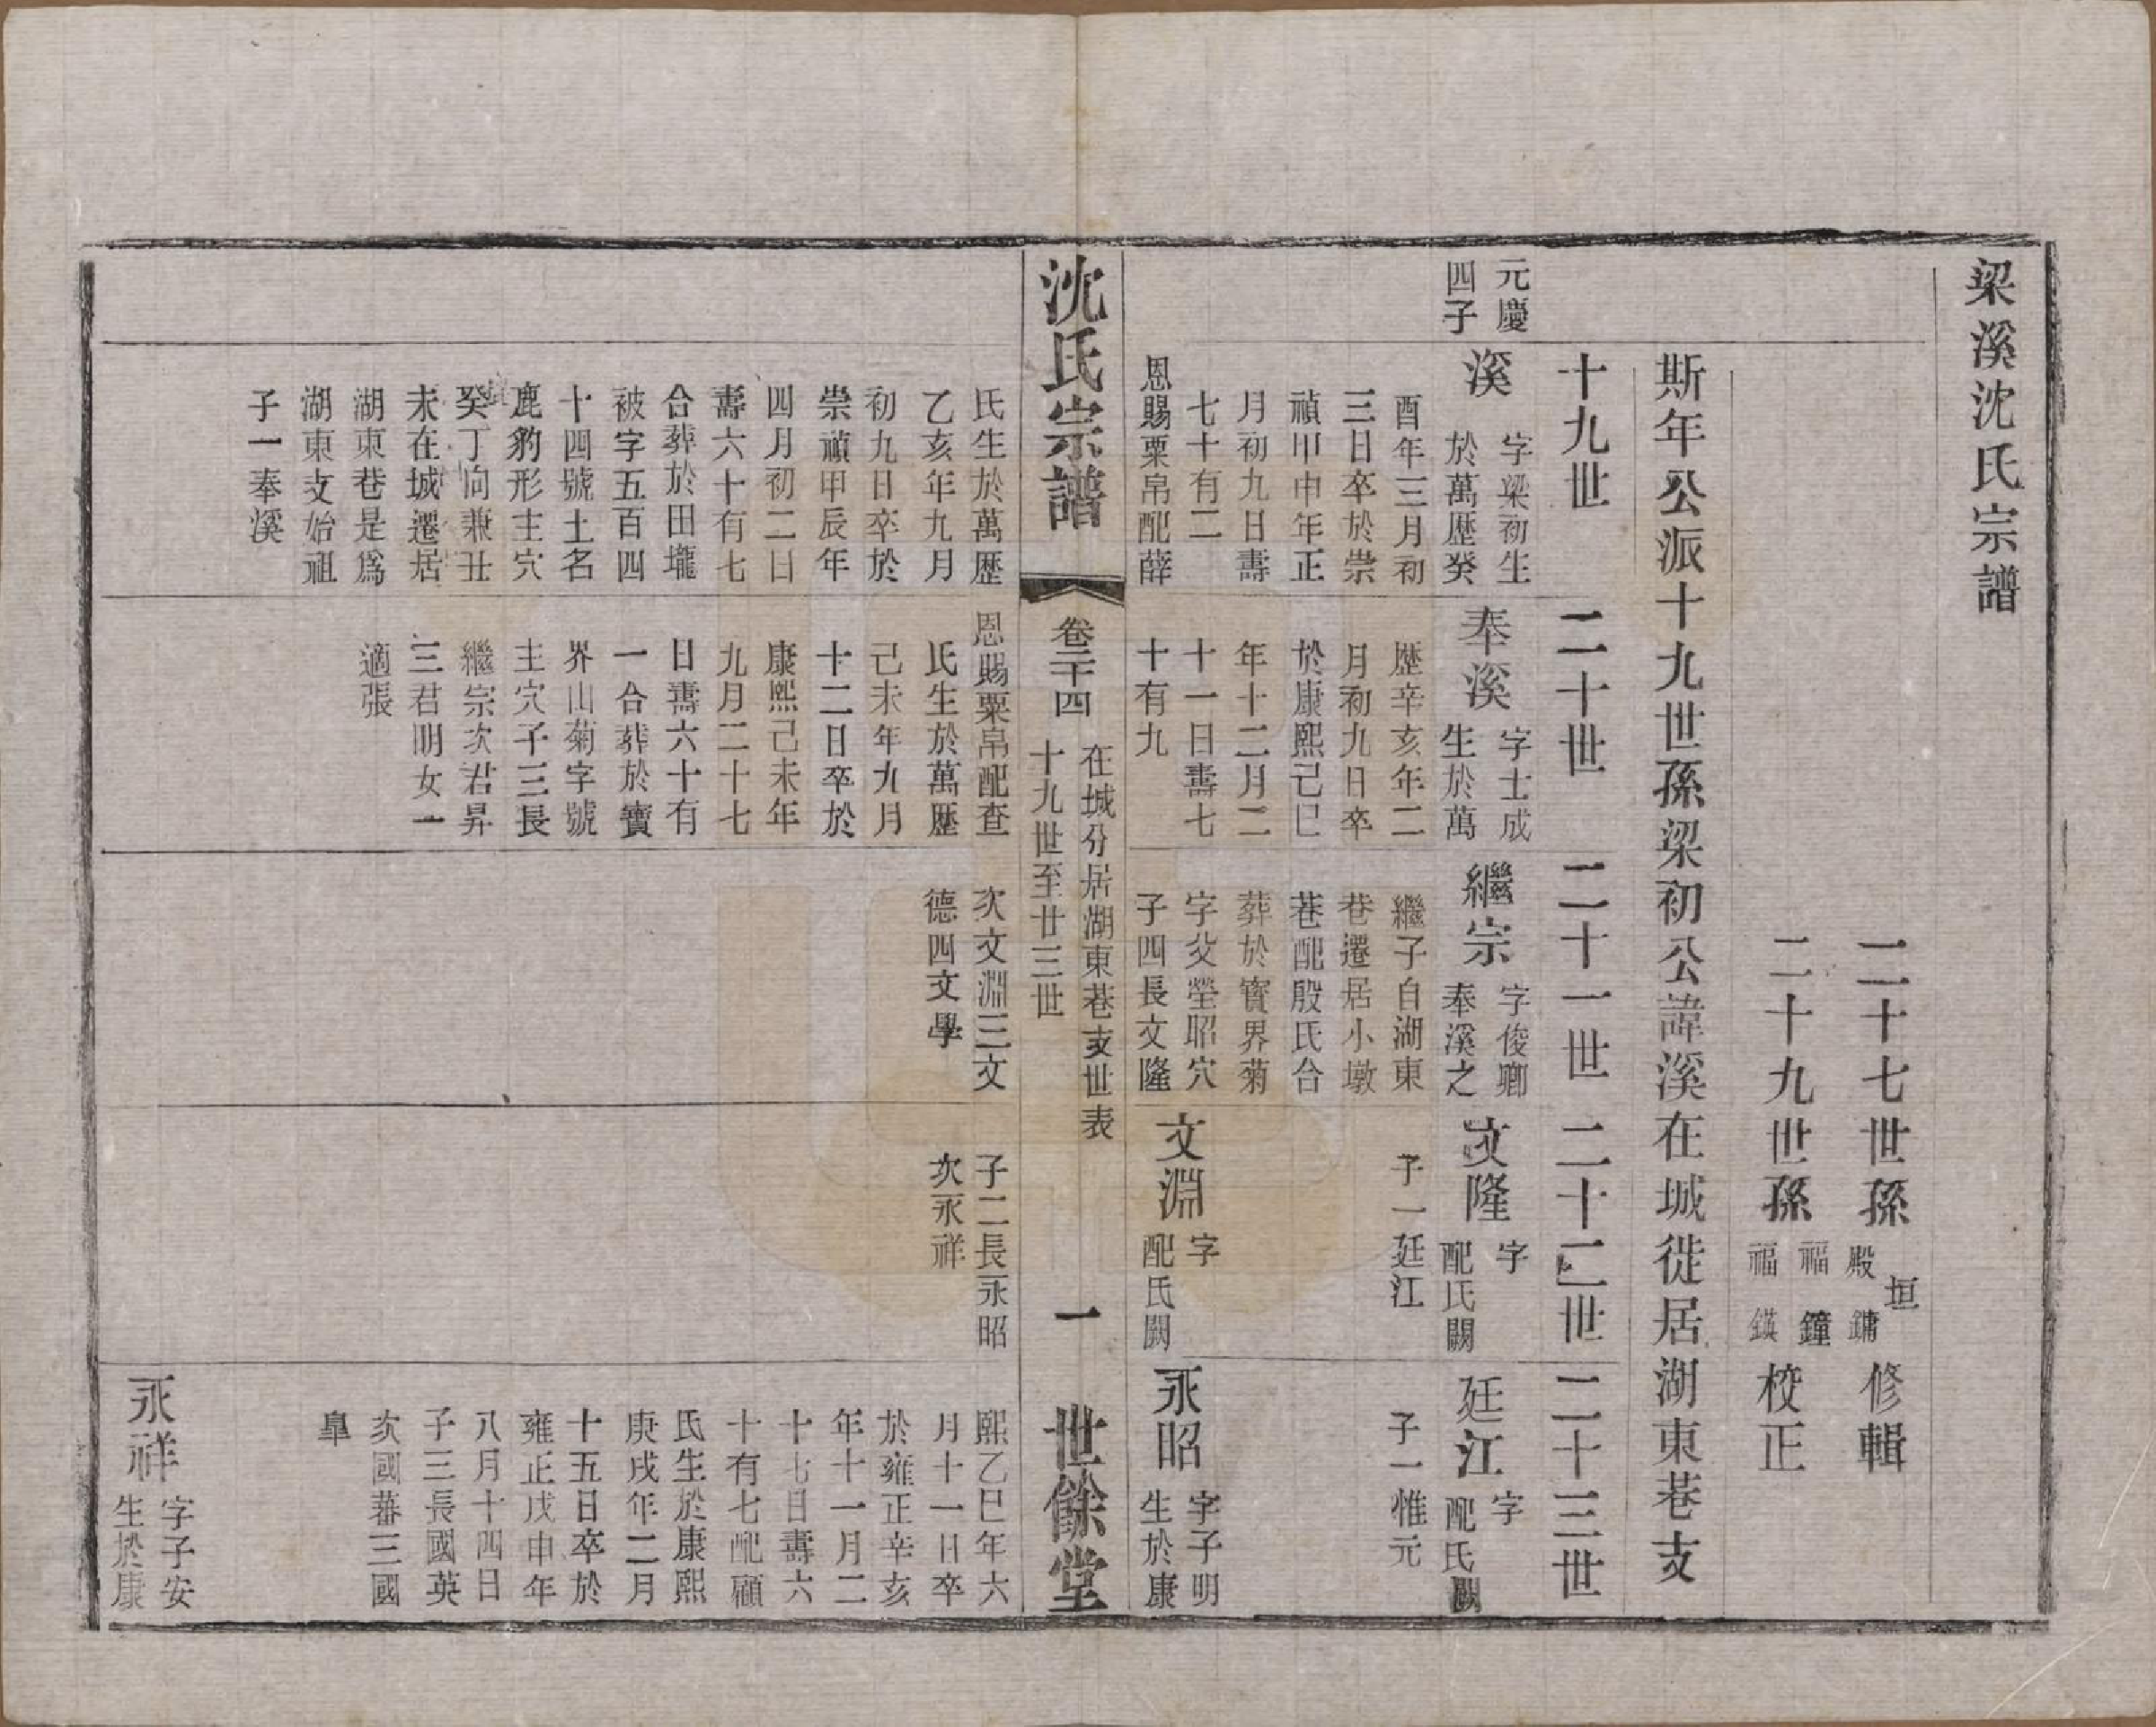 梁溪沈氏宗譜
二十七世孫
垣
殿鏞
修輯
二十九世孫
福鐘
福鍈
校正
斯年公派十九世孫梁初公諱溪在城徙居湖東巷支
十九世
二十世
二十一世
二十二世
二十三世
元慶
四子
溪
字梁初生
於萬歷癸
酉年三月初
三日卒於崇
禎甲申年正
月初九日壽
七十有二
恩賜粟帛配薛
氏生於萬歷
乙亥年九月
初九日卒於
崇禎甲辰年
四月初二日
壽六十有七
合葬於田壠
被字五百四
十四號土名
鹿豹形主穴
癸丁向兼丑
未在城遷居
湖東巷是爲
湖東支始祖
子一奉溪
奉溪
字士成
生於萬
歷辛亥年二
月初九日卒
於康熙己巳
年十二月二
十一日壽七
十有九
恩賜粟帛配查
氏生於萬歷
己未年九月
十二日卒於
康熙己未年
九月二十七
日壽六十有
一合葬於寶
界山菊字號
主穴子三長
繼宗次君昇
三君明女一
適張
繼宗
字俊卿
奉溪之
繼子自湖東
巷遷居小墩
巷配殷氏合
葬於寶界菊
字父塋昭穴
子四長文隆
次文淵三文
德四文學
文隆
字
配氏闕
子一廷江
文淵
字
配氏闕
子二長永昭
次永祥
廷江
字
配氏闕
子一惟元
永昭
字子明
生於康
熙乙巳年六
月十一日卒
於雍正辛亥
年十一月二
十七日壽六
十有七配顧
氏生於康熙
庚戌年二月
十五日卒於
雍正戊申年
八月十四日
子三長國英
次國蕃三國
皐
永祥
字子安
生於康
沈氏宗譜
卷二十四
在城分居湖東巷支世表
十九世至廿三世
一
世餘堂